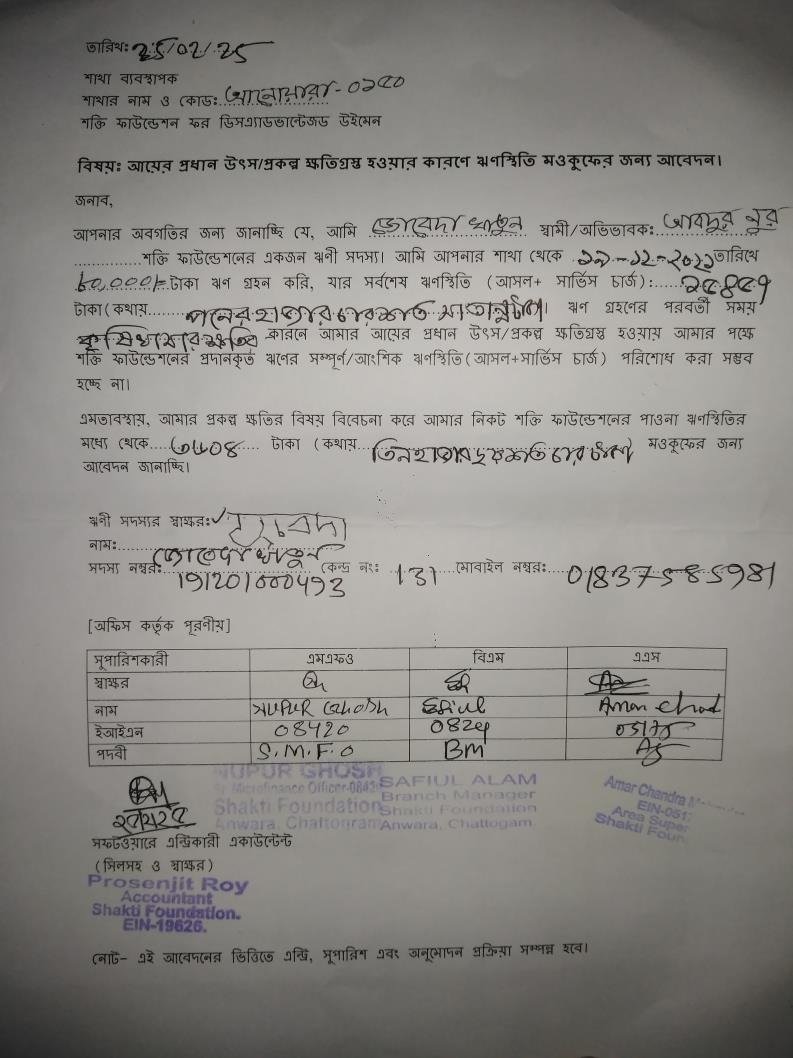 তারিখঃ 25/02/25
শাখা ব্যবস্থাপক
শাখার নাম ও কোড: আনোয়ারা-০১৫০
শক্তি ফাউন্ডেশন ফর ডিসএ্যাডভান্টেজড উইমেন
বিষয়ঃ আয়ের প্রধান উৎস/প্রকল্প ক্ষতিগ্রস্থ হওয়ার কারণে ঋণস্থিতি মওকুফের জন্য আবেদন।
জনাব,
আপনার অবগতির জন্য জানাচ্ছি যে, আমি জোবেদা খাতুন স্বামী/অভিভাবক: আবদুর নুর
শক্তি ফাউন্ডেশনের একজন ঋণী সদস্য। আমি আপনার শাখা থেকে তারিখে
টাকা ঋণ গ্রহন করি, যার সর্বশেষ ঋণস্থিতি (আসল+ সার্ভিস চার্জ): ১৫৪৫৭
টাকা(কথায় পনের হাজার চারশত সাতান্ন টাকা। ঋণ গ্রহণের পরবর্তী সময়
কারনে আমার আয়ের প্রধান উৎস/প্রকল্প ক্ষতিগ্রস্থ হওয়ায় আমার পক্ষে
শক্তি ফাউন্ডেশনের প্রদানকৃত ঋণের সম্পূর্ণ/আংশিক ঋণস্থিতি(আসল+সার্ভিস চার্জ) পরিশোধ করা সম্ভব
হচ্ছে না।
এমতাবস্থায়, আমার প্রকল্প ক্ষতির বিষয় বিবেচনা করে আমার নিকট শক্তি ফাউন্ডেশনের পাওনা ঋণস্থিতির
মধ্যে থেকে ৩৬০৪ টাকা (কথায় তিন হাজার ছয়শত চার টাকা) মওকুফের জন্য
আবেদন জানাচ্ছি।
ঋণী সদস্যর স্বাক্ষর:
নাম: জোবেদা খাতুন
সদস্য নম্বর: 191201000493 কেন্দ্র নং: 131 মোবাইল নম্বর: 01837585981
[অফিস কর্তৃক পূরণীয়]
সুপারিশকারী এমএফও বিএম এএস
স্বাক্ষর
নাম NUPUR Ghosh Safiul Amar Chad
ইআইএন 08420
পদবী S.M.F.O BM AS
NUPUR GHOSH
Sr Microfinance Officer-0842
Shakti Foundation
Anwara, Chattogram
SAFIUL ALAM
Branch Manager
Shakti Foundation
Anwara, Chattogam.
Amar Chandra
EIN-051
Area Super
Shakti Foun
সফটওয়ারে এন্ট্রিকারী একাউন্টেন্ট
(সিলসহ ও স্বাক্ষর)
Prosenjit Roy
Accountant
Shakti Foundation.
EIN-19626.
নোট- এই আবেদনের ভিত্তিতে এন্ট্রি, সুপারিশ এবং অনুমোদন প্রক্রিয়া সম্পন্ন হবে।